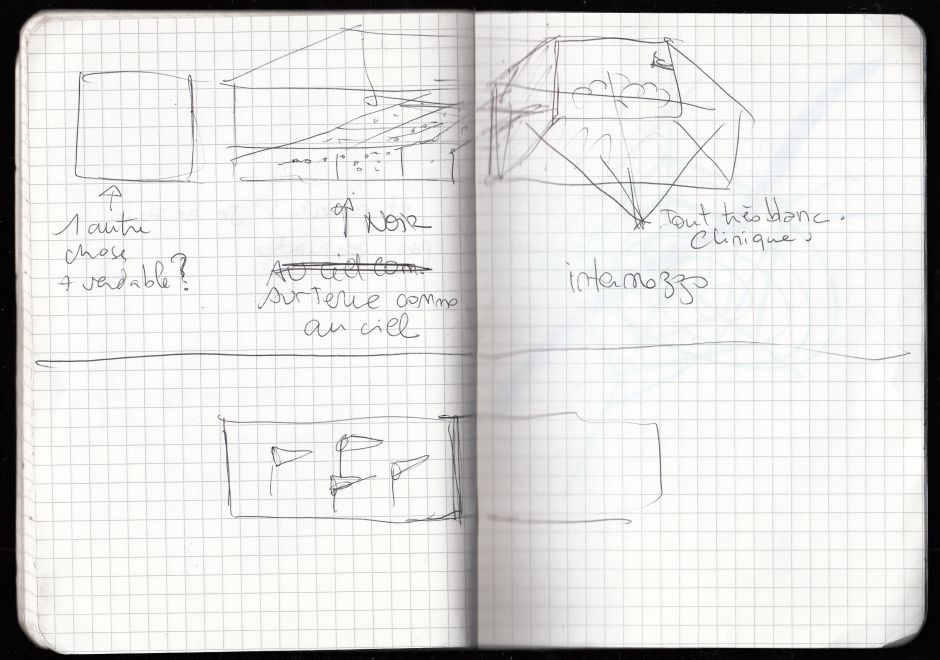 1 autre
chose
+ vendable ?
NOIR
Au ciel com
sur Terre comme
au ciel
Tout très blanc.
Clinique.
intermozzo